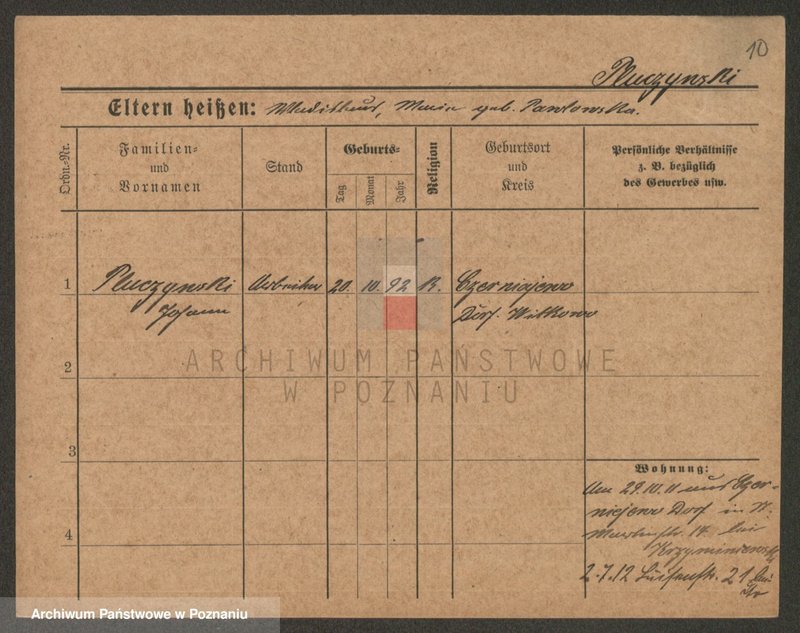 10
Pluczynski
Eltern heißen: Maria geb. Pawlowska.
Ordn.-Nr.
Familien-
und
Vornamen
Stand
Geburts-
Tag
Monat
Jahr
Religion
Geburtsort
und
Kreis
Persönliche Verhältnisse
z. B. bezüglich
des Gewerbes usw.
1 Pluczynski Arbeiter 20. 10. 92 K. Czerniejewo
Johann Dorf. Witkowo
2
ARCHIWUM PAŃSTWOWE
W POZNANIU
3
4
Wohnung:
Am 29.10.11 aus Czer-
niejewo Dorf in St.
Martinstr. 14 bei
2.7.12 Luisenstr. 21
Archiwum Państwowe w Poznaniu